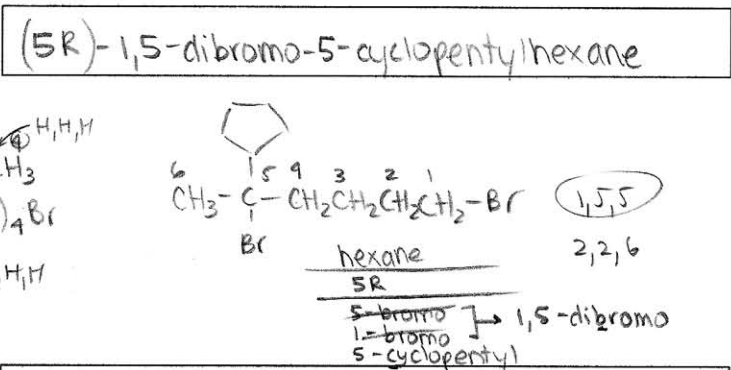 (5R)-1,5-dibromo-5-cyclopentylhexane
④ H,H,H
H3
)4Br
H,H
6 5 4 3 2 1
CH3-C-CH2CH2CH2CH2-Br
Br
1,5,5
2,2,6
hexane
5R
5-bromo
1-bromo
→ 1,5-dibromo
5-cyclopentyl